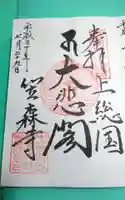 奉拝
上総国
大悲閣
笠森寺
平成三十年
七月二十九日